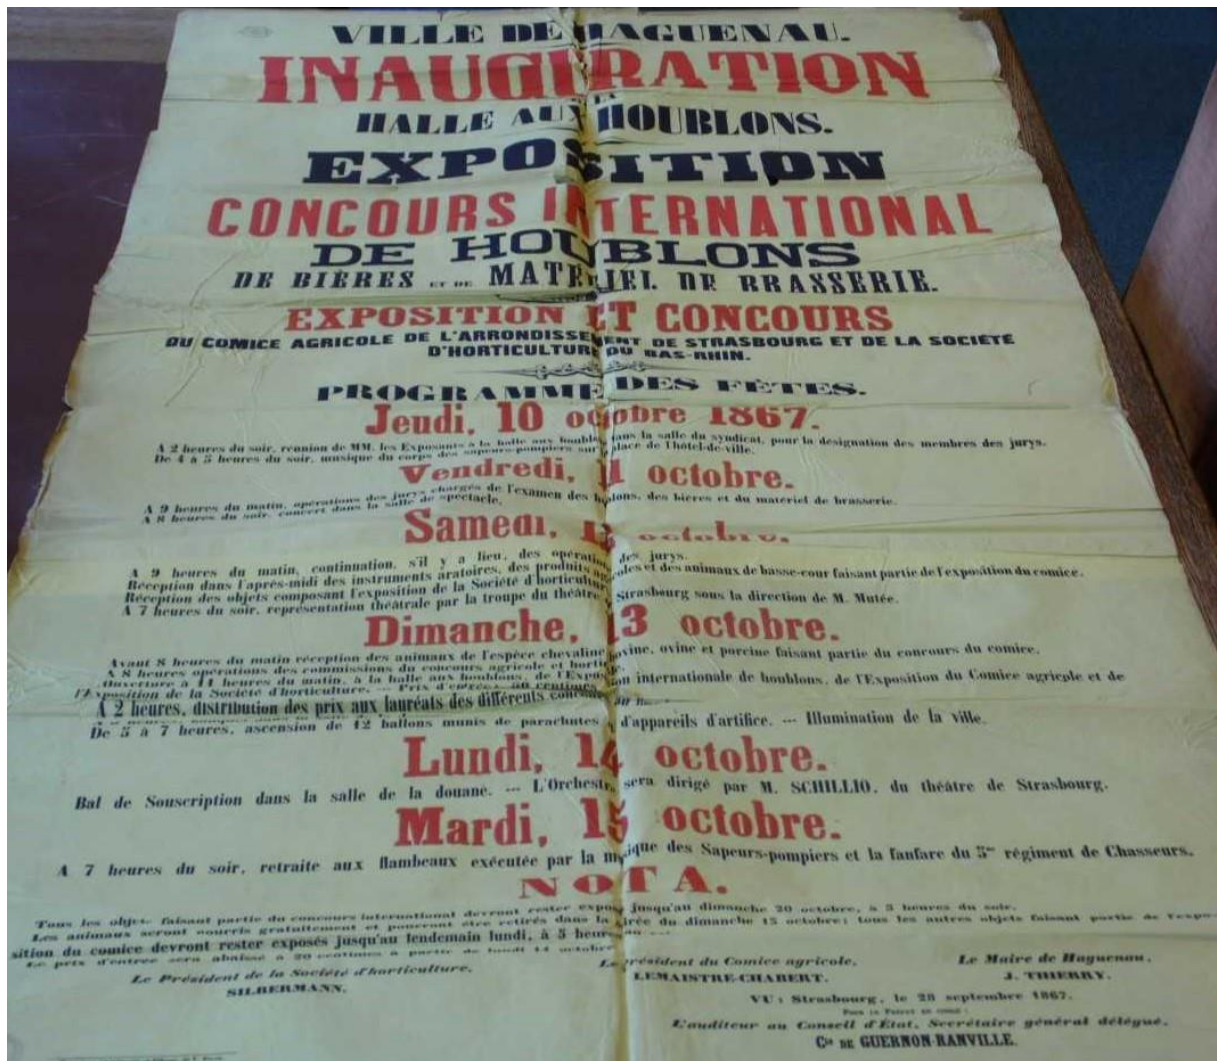 VILLE DE HAGUENAU.
INAUGURATION
LA
HALLE AUX HOUBLONS.
EXPOSITION
CONCOURS INTERNATIONAL
DE HOUBLONS
DE BIÈRES ET DE MATERIEL DE BRASSERIE.
EXPOSITION ET CONCOURS
DU COMICE AGRICOLE DE L'ARRONDISSEMENT DE STRASBOURG ET DE LA SOCIÉTÉ
D'HORTICULTURE DU BAS-RHIN.
PROGRAMME DES FÊTES.
Jeudi, 10 octobre 1867.
A 2 heures du soir, réunion de MM. les Exposants à la halle aux houblons dans la salle du syndicat, pour la désignation des membres des jurys.
De 4 à 5 heures du soir, musique du corps des sapeurs-pompiers sur place de l'hôtel-de-ville.
Vendredi, 11 octobre.
A 9 heures du matin, opérations des jurys chargés de l'examen des houblons, des bières et du matériel de brasserie.
A 8 heures du soir, concert dans la salle de spectacle.
Samedi, 12 octobre.
A 9 heures du matin, continuation, s'il y a lieu, des opérations des jurys.
Réception dans l'après-midi des instruments aratoires, des produits agricoles et des animaux de basse-cour faisant partie de l'exposition du comice.
Réception des objets composant l'exposition de la Société d'horticulture
A 7 heures du soir, représentation théâtrale par la troupe du théâtre Strasbourg sous la direction de M. Mutée.
Dimanche, 13 octobre.
Avant 8 heures du matin réception des animaux de l'espèce chevaline bovine, ovine et porcine faisant partie du concours du comice.
A 8 heures opérations des commissions du concours agricole et
Ouverture à 11 heures du matin, à la halle aux houblons, de l'Exposition internationale de houblons, de l'Exposition du Comice agricole et de
l'Exposition de la Société d'horticulture. --- Prix d'entrée: 50 centimes
A 2 heures, distribution des prix aux lauréats des différents concours
De 5 à 7 heures, ascension de 12 ballons munis de parachutes d'appareils d'artifice. --- Illumination de la ville.
Lundi, 14 octobre.
Bal de Souscription dans la salle de la douane. --- L'Orchestre sera dirigé par M. SCHILLIO, du théâtre de Strasbourg.
Mardi, 15 octobre.
A 7 heures du soir, retraite aux flambeaux exécutée par la musique des Sapeurs-pompiers et la fanfare du 5me régiment de Chasseurs.
NOTA.
Tous les objets faisant partie du concours international devront rester exposés jusqu'au dimanche 20 octobre, à 5 heures du soir.
Les animaux seront nourris gratuitement et pourront être retirés dans la soirée du dimanche 13 octobre; tous les autres objets faisant partie de l'expo-
sition du comice devront rester exposés jusqu'au lendemain lundi, à 5 heures du
Le prix d'entrée sera abaissé à 20 centimes à partir de lundi 14 octobre
Le Président de la Société d'horticulture.
SILBERMANN.
Le président du Comice agricole.
LEMAISTRE-CHABERT.
Le Maire de Haguenau,
J. THIERRY.
VU: Strasbourg, le 28 septembre 1867.
Pour le Préfet en congé:
L'auditeur au Conseil d'État, Secrétaire général délégué,
Cte DE GUERNON-RANVILLE.